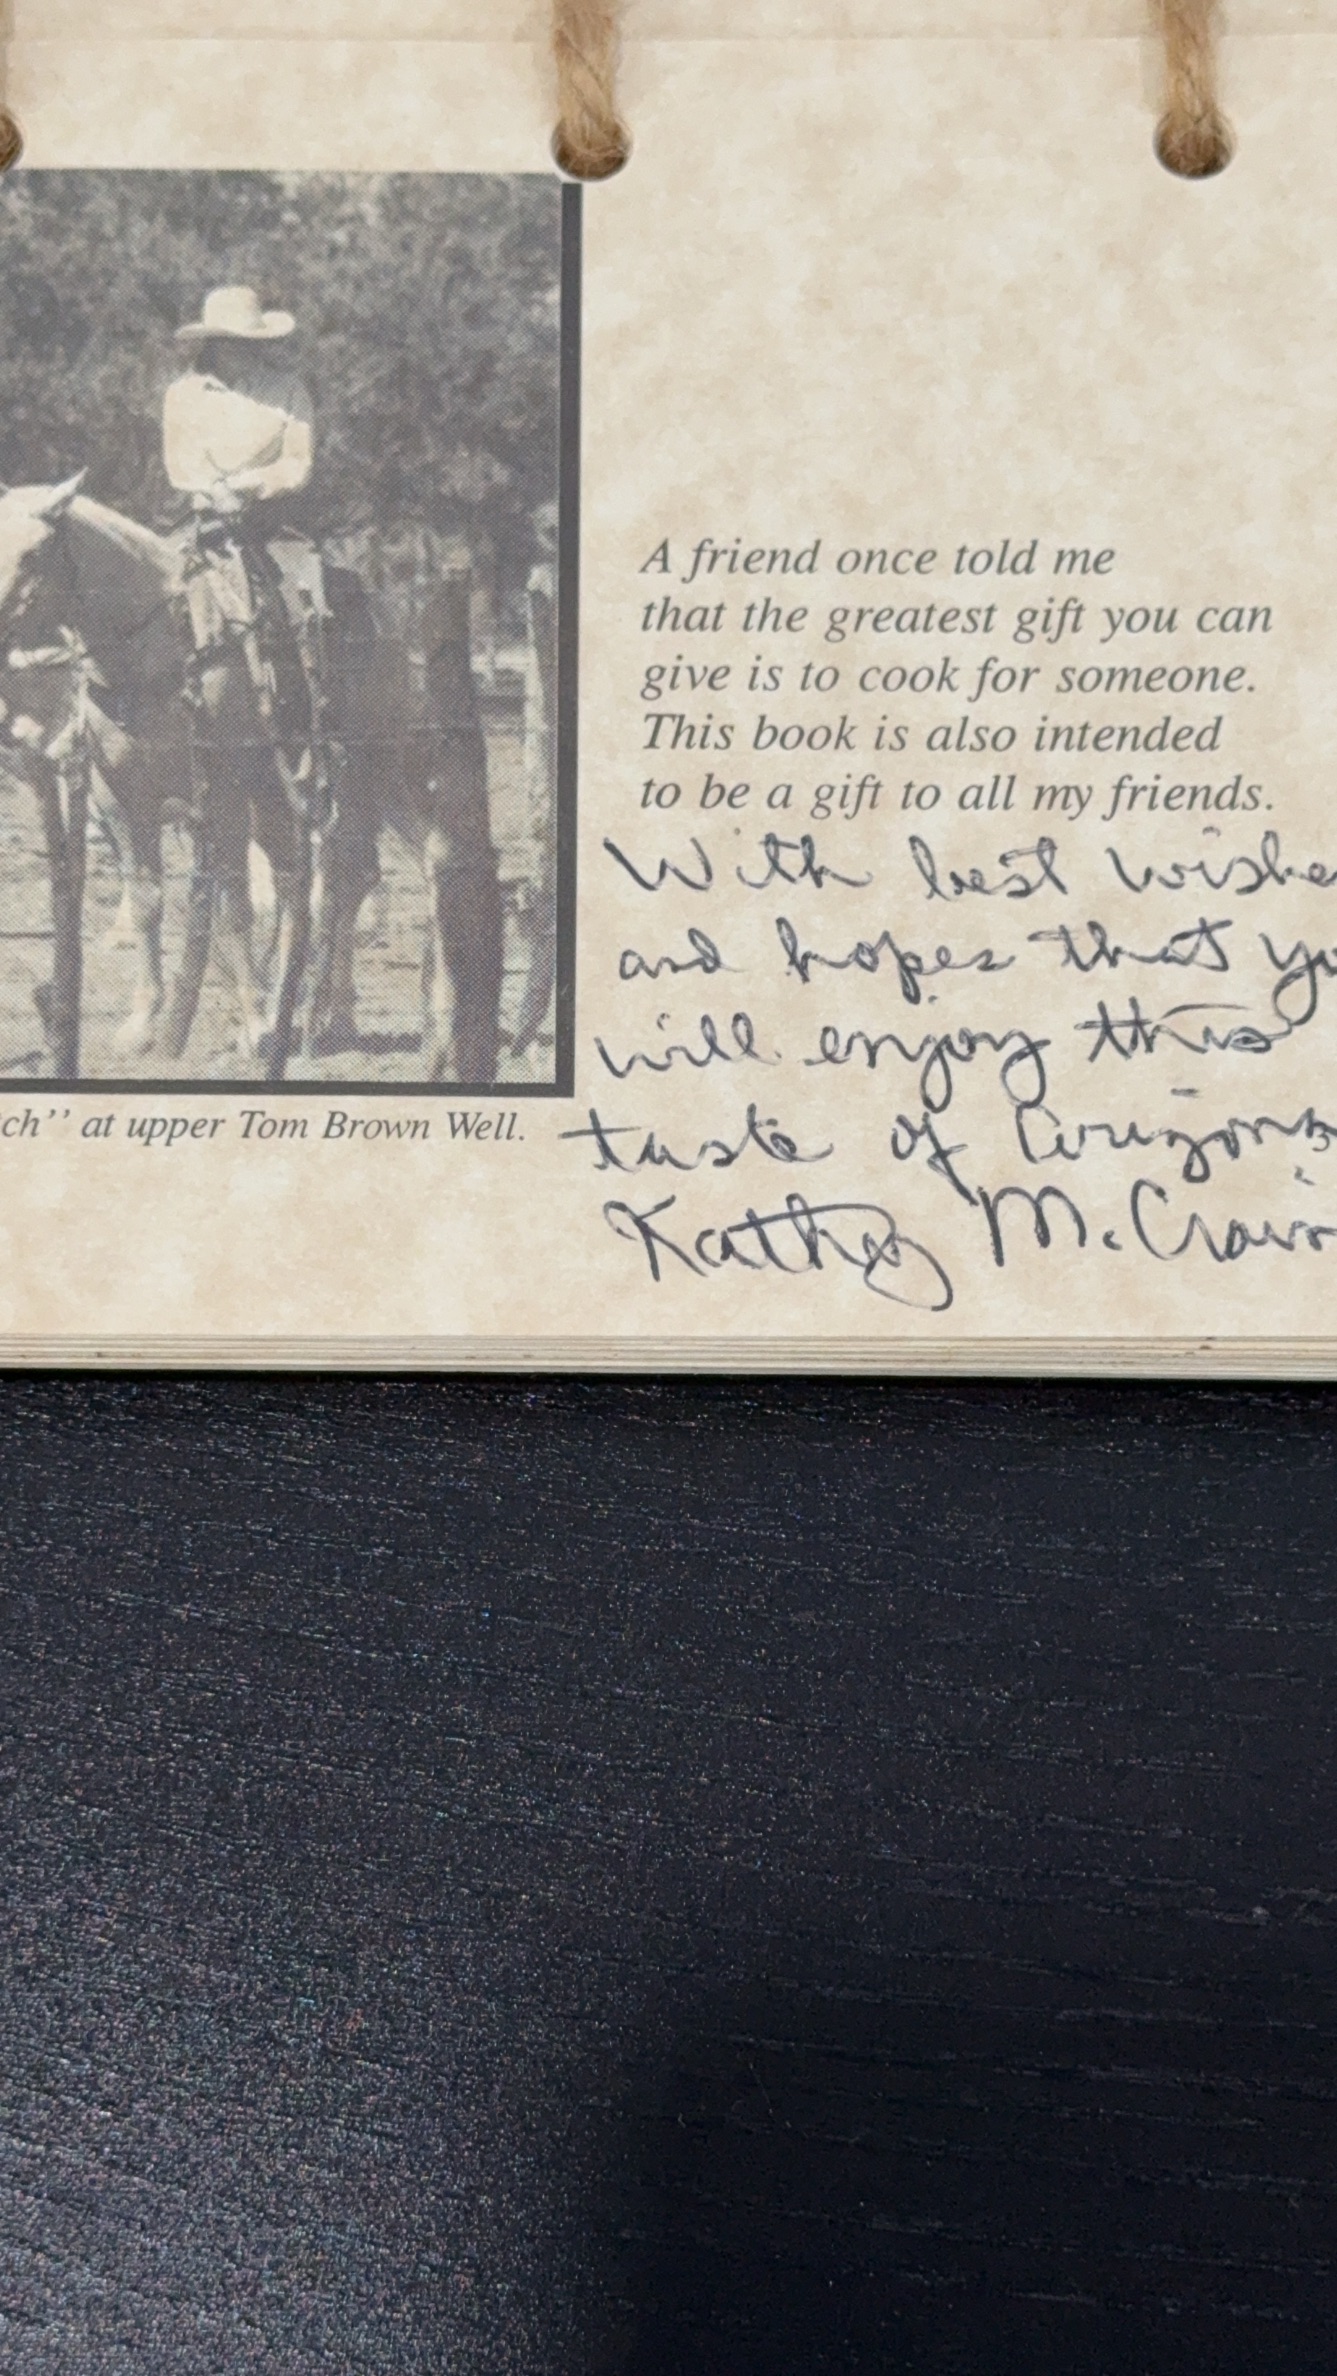 A friend once told me
that the greatest gift you can
give is to cook for someone.
This book is also intended
to be a gift to all my friends.
With best wishe
and hopes that yo
will enjoy this
taste of Arizona
Kathy McCrain
ch'' at upper Tom Brown Well.